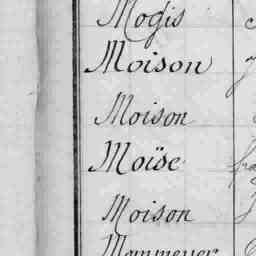 Mogis
Moison
Moison
Moïse
Moison
Mommeyer